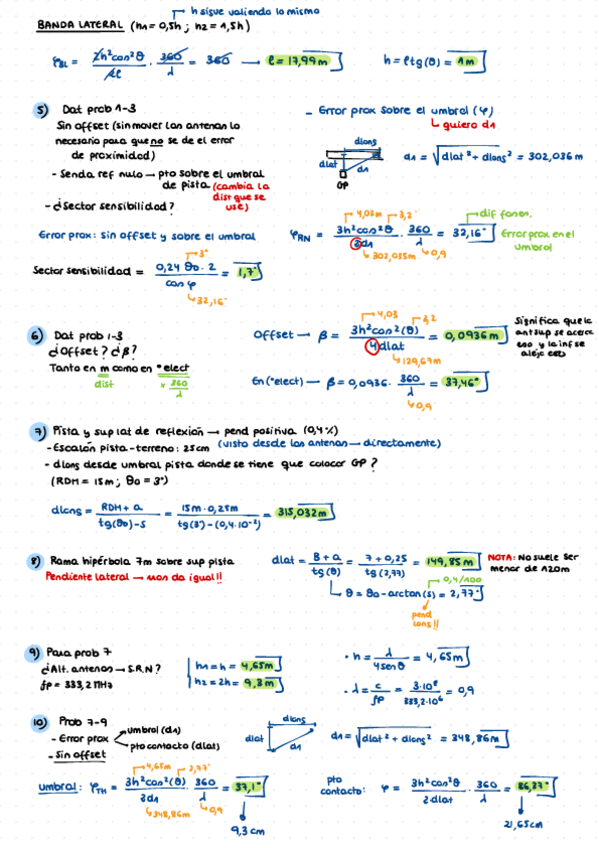 h sigue valiendo lo mismo
BANDA LATERAL (h1 = 0,5h ; h2 = 1,5h)
φBL = 2h²cos²θ / 4l · 360/λ = 360 → l = 17,99m
h = l tg(θ) = 1m
5) Dat prob 1-3
Sin offset (sin mover las antenas lo
necesario para que no se de el error
de proximidad)
- Senda ref nulo → pto sobre el umbral
de pista (cambia la
dist que se
use)
- ¿Sector sensibilidad?
- Error prox sobre el umbral (φ)
↳ quiero d1
dlong
dlat
d1
GP
d1 = √(dlat² + dlong²) = 302,036m
Error prox: sin offset y sobre el umbral
4,03m 3,2
φRN = 3h²cos²θ / 2d1 · 360/λ = 32,16°
↳ 302,035m ↳ 0,9
dif fanen.
Error prox en el
umbral
3°
Sector sensibilidad = 0,24 θo · 2 / cos φ = 1,7°
↳ 32,16°
6) Dat prob 1-3
¿Offset? ¿β?
Tanto en m como en °elect
dist × 360/λ
4,03 3,2
Offset → β = 3h²cos²(θ) / 4dlat = 0,0936m
↳ 129,67m
Significa que la
ant sup se acerca
eso y la inf se
aleje eso
En (°elect) → β = 0,0936 · 360/λ = 37,46°
↳ 0,9
7) Pista y sup lat de reflexión → pend positiva (0,4%)
- Escalón pista-terreno: 25cm (visto desde las antenas → directamente)
- dlong desde umbral pista donde se tiene que colocar GP?
(RDH = 15m ; θo = 3°)
dlong = RDH + a / tg(θo) - s = 15m · 0,25m / tg(3°) - (0,4·10⁻²) = 315,032m
8) Rama hipérbola 7m sobre sup pista
Pendiente lateral → nos da igual!!
dlat = B + a / tg(θ) = 7 + 0,25 / tg(2,77) = 149,85m
NOTA: No suele ser
menor de 120m
0,4/100
↳ θ = θo - arctan(s) = 2,77°
pend
long!!
9) Para prob 7
¿Alt. antenas → S.R.N?
fp = 333,2 MHz
h1 = h = 4,65m
h2 = 2h = 9,3m
· h = λ / 4senθ = 4,65m
· λ = c / fp = 3·10⁸ / 333,2·10⁶ = 0,9
10) Prob 7-9
- Error prox umbral (d1)
pto contacto (dlat)
- Sin offset
dlong
dlat
d1
d1 = √(dlat² + dlong²) = 348,86m
4,65m 2,77°
umbral: φTH = 3h²cos²(θ) / 2d1 · 360/λ = 37,1°
↳ 348,86m ↳ 0,9
9,3cm
pto
contacto: φ = 3h²cos²θ / 2·dlat · 360/λ = 86,37°
21,65cm